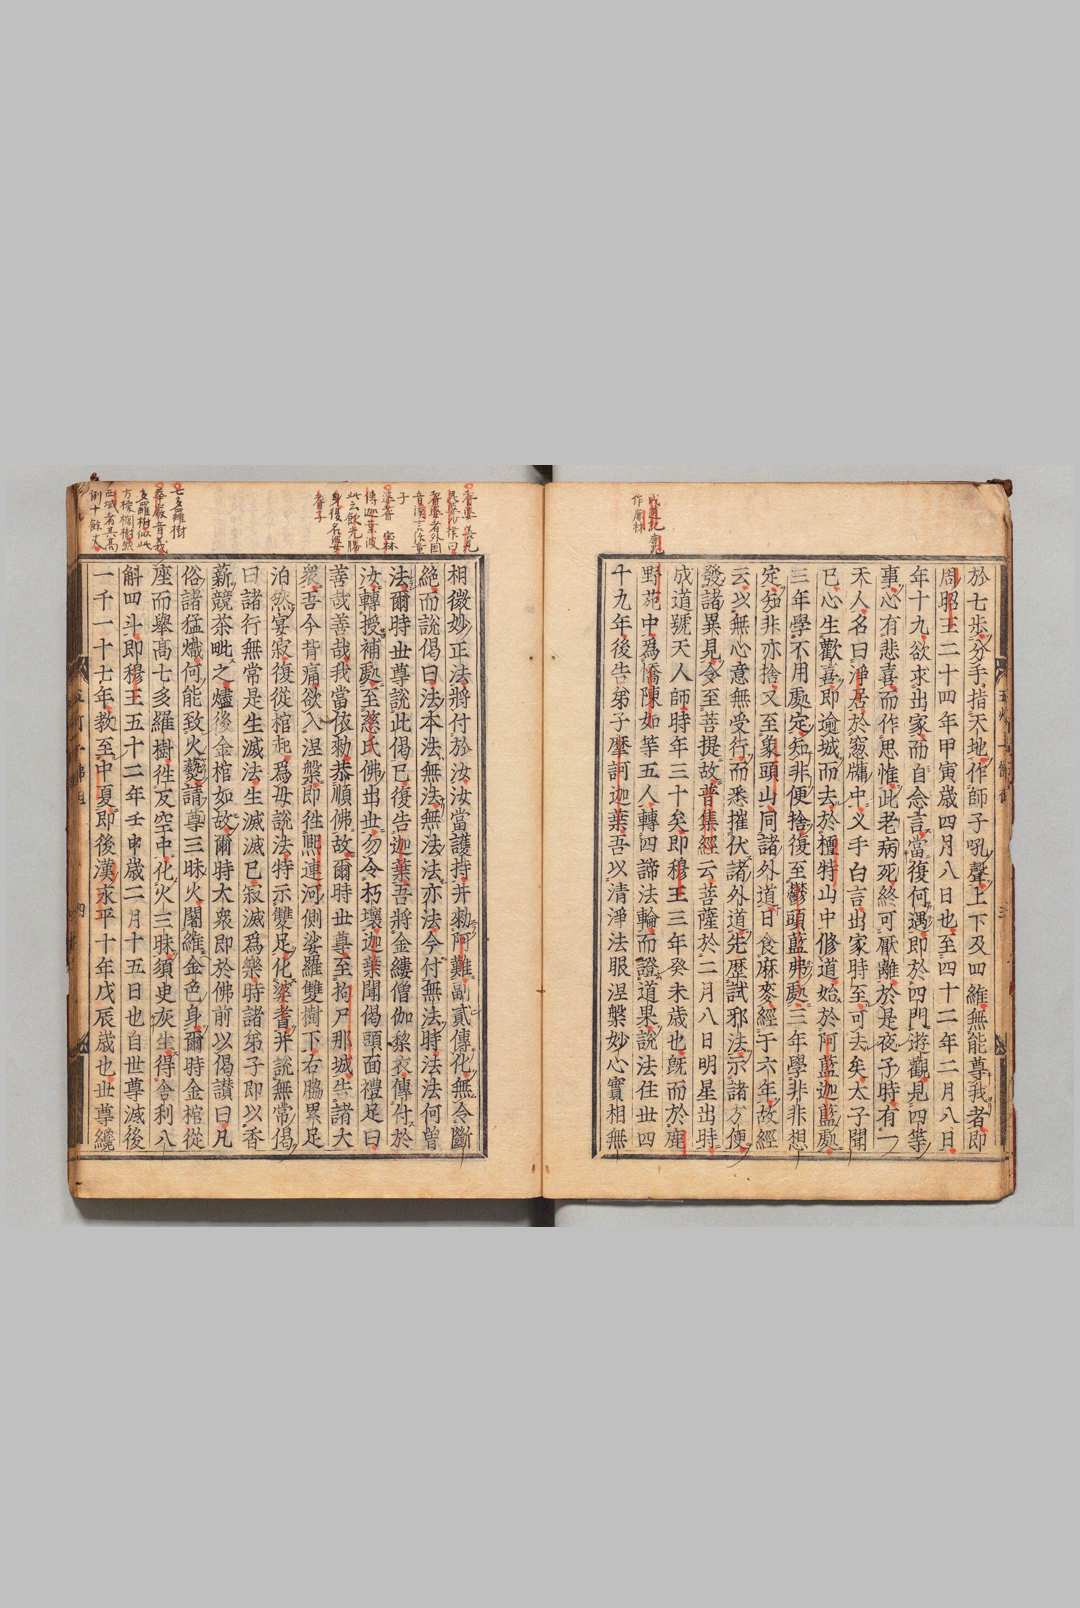 於七歩分手指天地作師子吼聲上下及四維無能尊我者即
周昭王二十四年甲寅歳四月八日也至四十二年二月八日
年十九欲求出家而自念言當復何遇即於四門遊觀見四等
事心有悲喜而作思惟此老病死終可厭離於是夜子時有一
天人名曰淨居於窓牖中叉手白言出家時至可去矣太子聞
已心生歡喜即逾城而去於檀特山中修道始於阿藍迦藍處
三年學不用處定知非便捨復至鬱頭藍弗處三年學非非想
定知非亦捨又至象頭山同諸外道日食麻麥經于六年故經
云以無心意無受行而悉摧伏諸外道先歷試邪法示諸方便
發諸異見令至菩提故普集經云菩薩於二月八日明星出時
成道號天人師時年三十矣即穆王三年癸未歳也旣而於鹿
野苑中爲憍陳如等五人轉四諦法輪而證道果說法住世四
十九年後告弟子摩訶迦葉吾以清淨法眼涅槃妙心實相無
相微妙正法將付於汝汝當護持并勑阿難副貳傳化無令斷
絕而說偈曰法本法無法無法法亦法今付無法時法法何曽
法爾時世尊說此偈已復告迦葉吾將金縷僧伽棃衣傳付於
汝轉授補處至慈氏佛出世勿令朽壞迦葉聞偈頭面禮足曰
善哉善哉我當依勑恭順佛故爾時世尊至拘尸那城告諸大
衆吾今背痛欲入涅槃即徃熙連河側娑羅雙樹下右脇累足
泊然宴寂復從棺起爲母說法特示雙足化婆耆并說無常偈
曰諸行無常是生滅法生滅滅已寂滅爲樂時諸弟子即以香
薪競茶毗之燼後金棺如故爾時大衆即於佛前以偈讃曰凡
俗諸猛熾何能致火爇請尊三昧火闍維金色身爾時金棺從
座而舉高七多羅樹徃反空中化火三昧須臾灰生得舎利八
斛四斗即穆王五十二年壬申歳二月十五日也自世尊滅後
一千一十七年教至中夏即後漢永平十年戊辰歳也世尊纔
七多羅樹
華嚴音義
多羅樹似此
方椶櫚樹然
西域者其高
例十餘丈